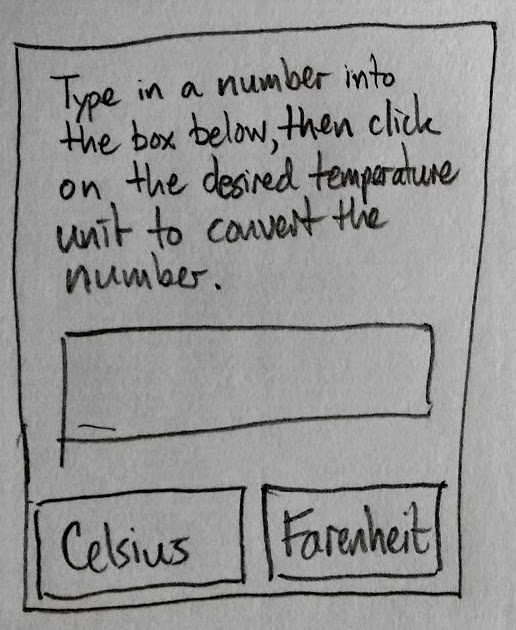 Type in a number into
the box below, then click
on the desired temperature
unit to convert the
number.
Celsius
Farenheit